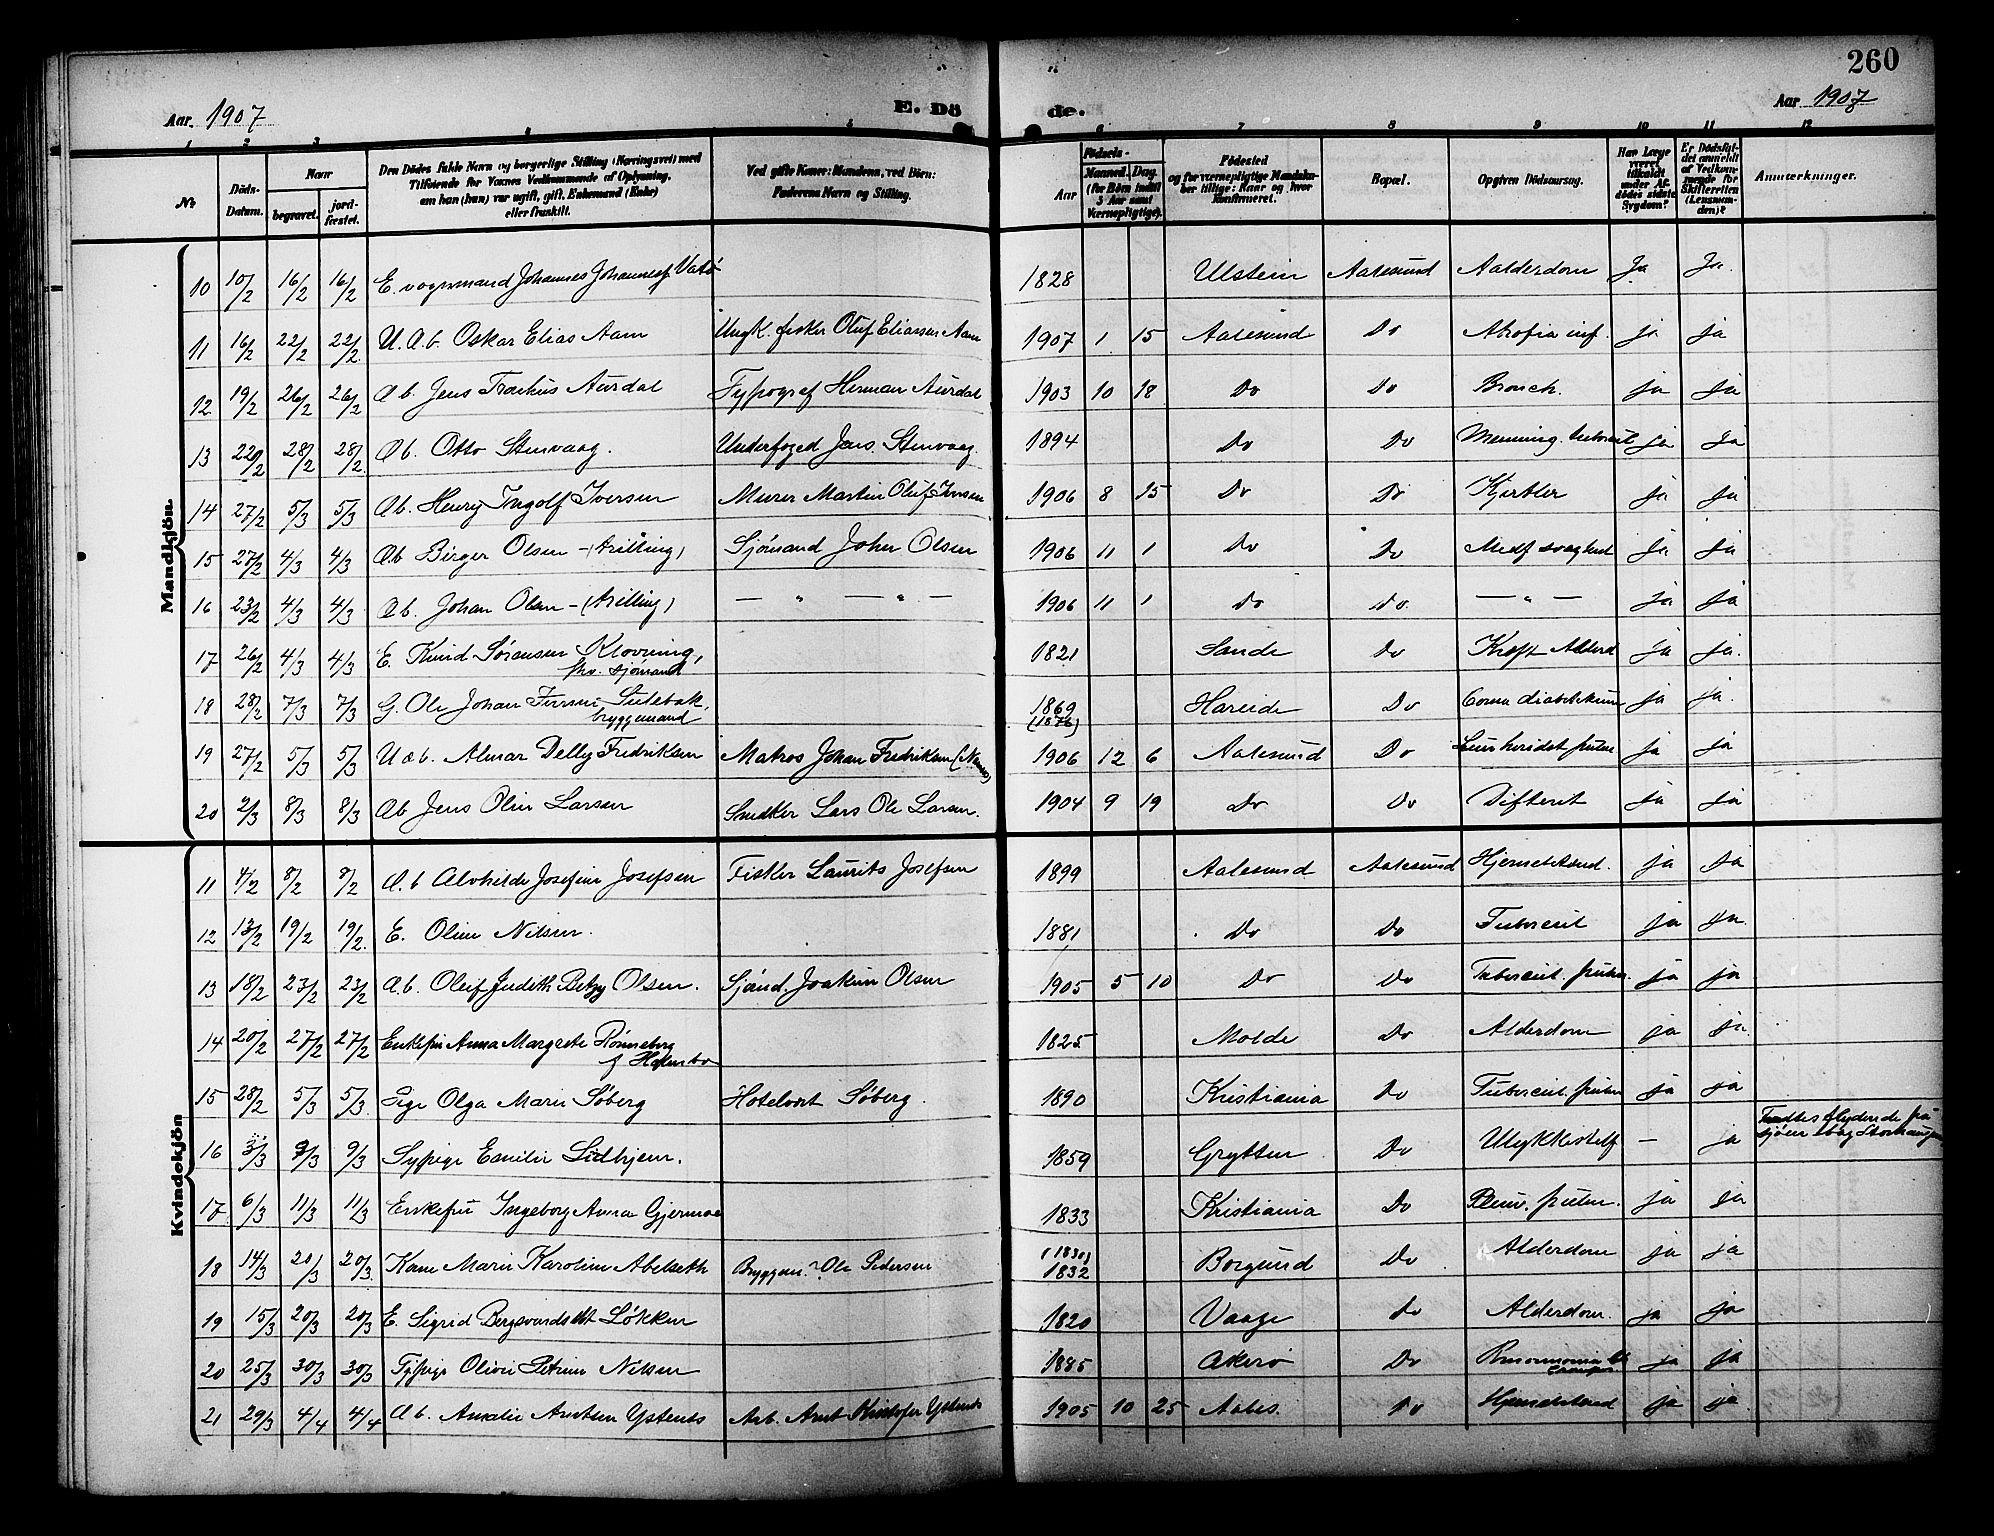 260
Aar 1907 E. Dö de. Aar 1907
1 2 3 4 5 6 7 8 9 10 11 12
No
Døds-Datum.
Naar
begravet.
jordfæstet.
Den Dødes fulde Navn og borgerlige Stilling (Næringsvei) med
Tilføiende for Voxnes Vedkommende af Oplysning,
om han (hun) var ugift, gift, Enkemand (Enke)
eller fraskilt.
Ved gifte Koner: Mandens, ved Börn:
Faderens Navn og Stilling.
Fødsels-
Aar
Maaned. Dag.
(for Börn indtil
3 Aar samt
Værnepligtige).
Födested
og for værnepligtige Mandskaber tillige: Naar og hvor
konfirmeret.
Bopæl.
Opgiven Dödsaarsag.
Har Læge
været
tilkaldt
under Afdödes sidste
Sygdom?
Er Dödsfaldet anmeldt
af Vedkommende for
Skifteretten
(Lensmanden)?
Anmærkninger.
Mandkjön.
10 10/2 16/2 16/2 E. vognmand Johannes Johannesf. Vatö 1828 Ulstein Aalesund Aalderdom Ja Ja.
11 16/2 22/2 22/2 U. Æ. b. Oskar Elias Aam Ungk. fisker Oluf Eliassen Aam 1907 1 15 Aalesund Do Atrofia inf. ja ja
12 19/2 26/2 26/2 Æb. Jens Aurdal Typograf Herman Aurdal 1903 10 18 Do Do Bronch. ja ja
13 22/2 28/2 28/2 Æb. Otto Stenvaag. Underfoged Jens Stenvaag. 1894 Do Do Menning. tubercul ja ja
14 27/2 5/3 5/3 Æb. Henry Ingolf Iversen Murer Martin Oluf Iversen 1906 8 15 Do Do Kjertler ja ja
15 27/2 4/3 4/3 Æb Birger Olsen - (trilling) Sjömand Johan Olsen 1906 11 1 Do Do Medf svaghed ja ja
16 23/2 4/3 4/3 Æb. Johan Olsen - (trilling) — " — " — 1906 11 1 Do Do. — " — ja ja
17 26/2 4/3 4/3 E. Knud Sørensen Klovning,
fhv. sjömand 1821 Sande Do Kræft Alderd ja ja.
18 28/2 7/3 7/3 G. Ole Johan
bryggemand 1869 Hareide Do Coma diabetekum ja ja.
19 27/2 5/3 5/3 U æb. Almar Delly Fredriksen Matros Johan Fredriksen 1906 12 6 Aalesund Do ja ja
20 2/3 8/3 8/3 Æb Jens Olin Larsen Snedker Lars Ole Larsen. 1904 9 19 Do Do Difterit ja ja
Kvindekjön
11 4/2 8/2 8/2 Æ. b Alvhilde Josefine Josefsen Fisker Laurits Josefsen 1899 Aalesund Aalesund ja ja
12 13/2 19/2 19/2. E. Oline Nilsen. 1881 Do Do Tubercul ja ja.
13 18/2 23/2 23/2 Æb. Oluf Judith Betzy Olsen. Sjömd. Joakim Olsen 1905 5 10 Do Do Tubercul. pulm. ja ja
14 20/2 27/2 27/2 Enkefru Anna Margrete Rönneberg
f Holmbo 1825 Molde Do Alderdom ja ja.
15 28/2 5/3 5/3 Pige Olga Marie Søberg Hotelvært Søberg. 1890 Kristiania Do Tubercul. pulm ja ja
16 3/3 9/3 9/3 Sypige Emilie Lidhjem. 1859 Grytten Do Ulykkestilf — ja Fandtes flydende paa
sjøen
17 6/3 11/3 11/3 Enkefru Ingeborg Anna Gjermoe 1833 Kristiania Do pulm. ja ja
18 14/3 20/3 20/3 Kone Marie Karoline Abelseth Bryggem. Ole Pedersen (1831)
1832 Borgund Do Alderdom ja ja
19 15/3 20/3 20/3 E. Sigrid Bergsvendsdt Løkken 1820 Vaage Do Alderdom. ja ja
20 25/3 30/3 30/3 Typige Olive Petrine Nilsen 1885 Akerö Do ja ja
21 29/3 4/4 4/4 Æ b. Amalie Arntsen Ystenes Arb. Arnt Kristofer Ystenes 1905 10 25 Aales. Do ja ja.